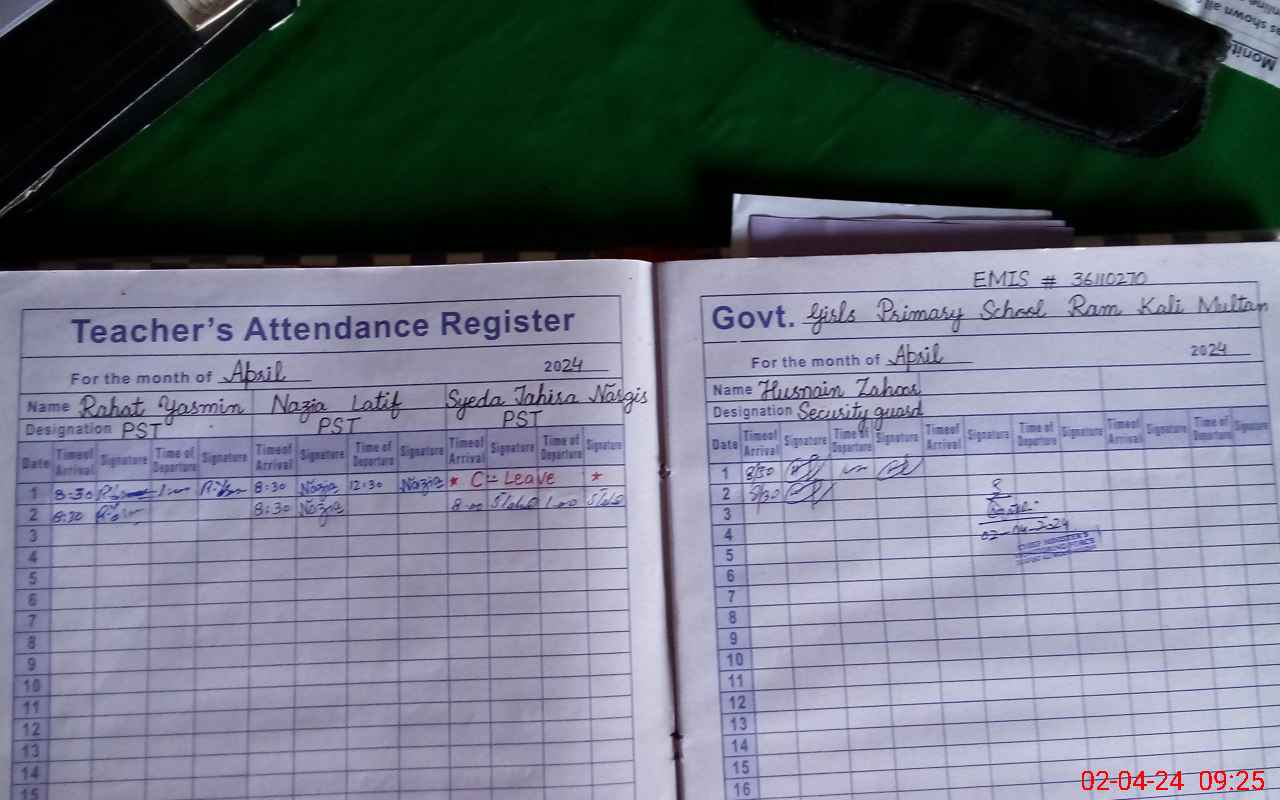 Monit
Teacher's Attendance Register
For the month of April 2024
Name Rahat Yasmin Nazia Latif Syeda Tahira Nargis
Designation PST PST PST
Date Time of Arrival Signature Time of Departure Signature Time of Arrival Signature Time of Departure Signature Time of Arrival Signature Time of Departure Signature
1 8:30 8:30 Nazia 12:30 Nazia * C-Leave *
2 8:30 8:30 Nazia 8:00 1:00
3
4
5
6
7
8
9
10
11
12
13
14
15
EMIS # 36110270
Govt. Girls Primary School Ram Kali Multan
For the month of April 2024
Name Husnain Zahoor
Designation Security guard
Date Time of Arrival Signature Time of Departure Signature Time of Arrival Signature Time of Departure Signature Time of Arrival Signature Time of Departure Signature
1 8/30
2 8/30
3
4 02-04-2024
5
6
7
8
9
10
11
12
13
14
15
16
02-04-24 09:25